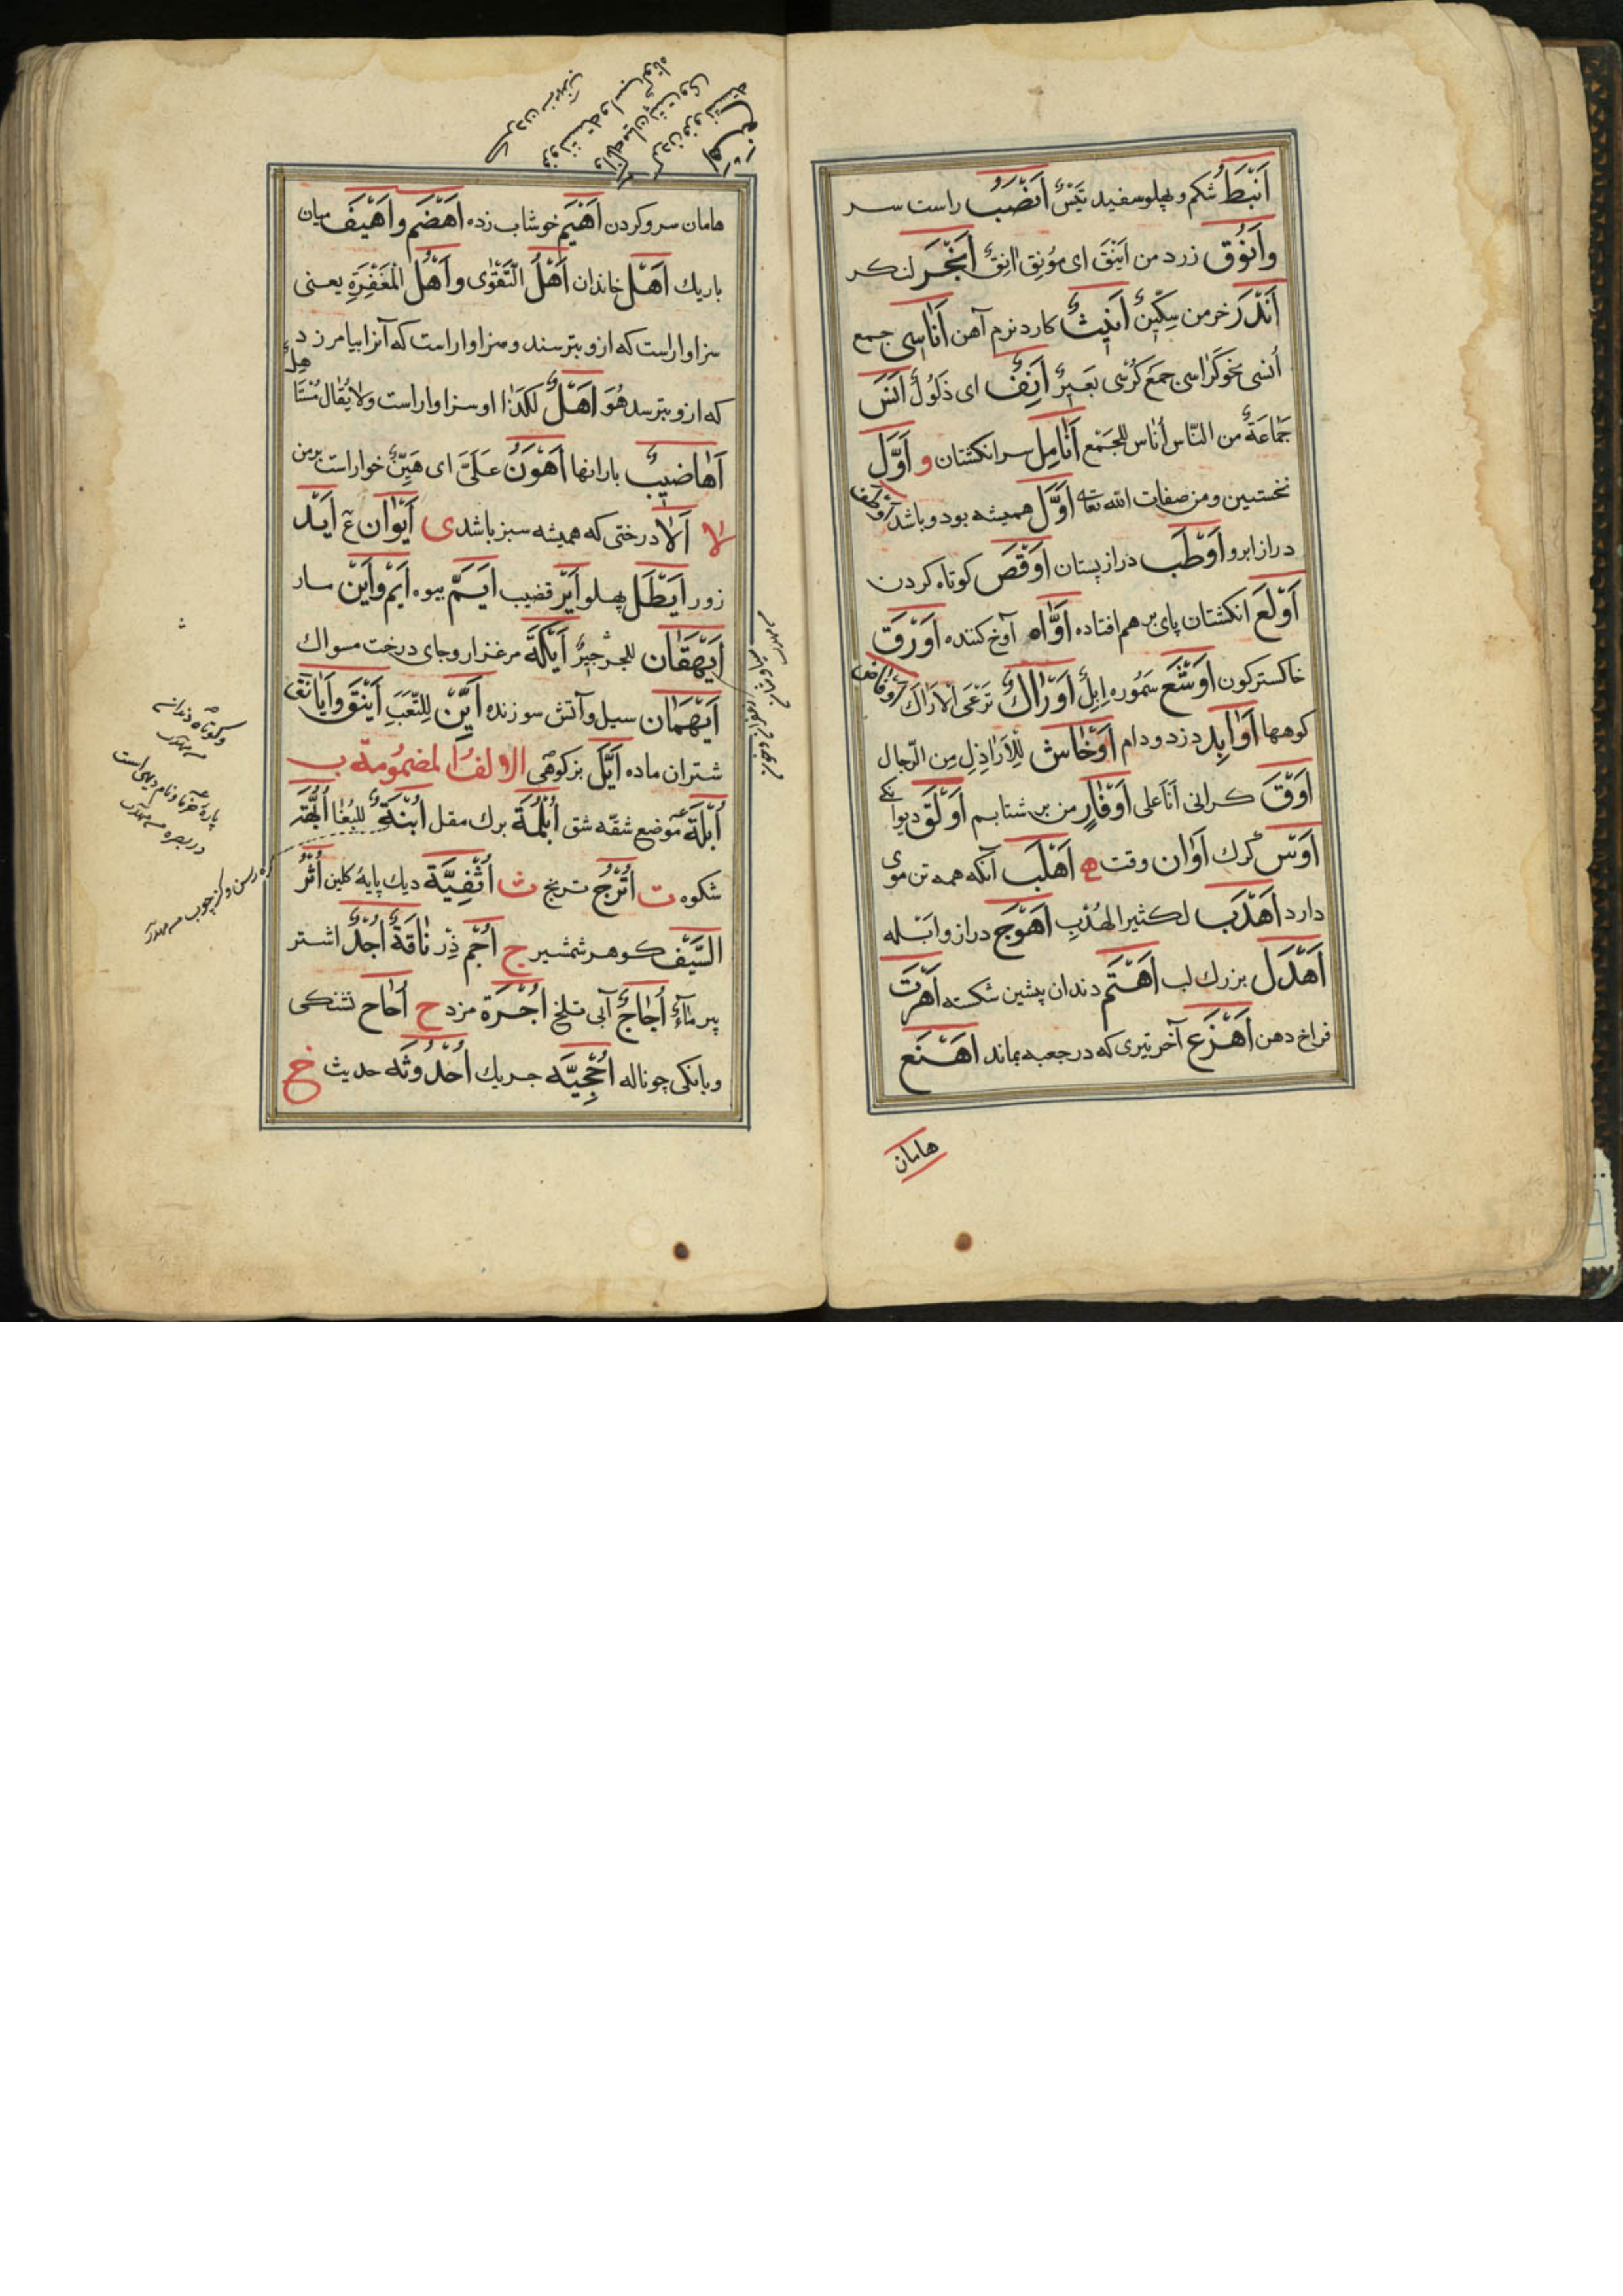 اَنْبَطُ شکم و پهلو سفید تَیْسٌ اَنْصَبُ راست سر
وَاَنُوْق زرد من اَیْنَقَ ای مُؤنِق اَنِقٌ اَنْجَر لنکر
اَنْدَر خرمن سِکّیْنٌ اَنِیْثٌ کارد نرم آهن اَنَاسِی جمع
اُنسی نحو کَرَاسی جمع کُرْسی بَعیرٌ اَنِفٌ ای ذَلُوْلٌ اَنَسَ
جَمَاعَةٌ من النّاس اُنَاس للجَمْع اَنَامِل سر انکشتان و اَوَّل
نخستین و من صفات الله تعا اَوَّل همیشه بود و باشد اَوْطَف
دراز ابرو اَوْطَب دراز پستان اَوْقَص کوتاه کردن
اَوْلَع انکشتان پای بر هم افتاده اَوَّاه آوخ کننده اَوْرَق
خاکسترکون اَوْشَع سَمُوره اِبِلٌ اَوْرَاكٌ تَرْعَی الْاَرَاك
کوهها اَوَابِد دزد و دام اَوْخَاش لِلْاَرَاذِلِ مِن الرِّجال
اَوْق کرانی اَنَا عَلی اَوْفَازٍ من بر شتابم اَوْلَق دیوانکی
اَوْس کُرك اَوَان وقت ه اَهْلَب آنکه همه تن موی
دارد اَهْدَب لکثیر الهُدْبِ اَهْوَج دراز و ابله
اَهْدَل بزرك لب اَهْتَم دندان پیشین شکسته اَهْرَت
فراخ دهن اَهْزَع آخر تیری که در جعبه بماند اَهْنَع
هامان
هامان سر و کردن اَهْیَم خوشاب زده اَهْضَم و اَهْیَف میان
باریك اَهْل خاندان اَهْلُ التَّقْوٰی و اَهْلُ الْمَغْفِرَةِ یعنی
سزاوار است که ازو بترسند و سزاوار است که آنرا بیامرزد
که ازو بترسد هُوَ اَهْلٌ لکَذَا او سزاوار است ولا یُقَالُ مُسْتَاهِلٌ
اَهَاضیْبُ بارانها اَهْوَنُ عَلَیَّ ای هَیِّنٌ خوار است بر من
لا اَلَا درختی که همیشه سبز باشد ی اَیْوَان ع اَیْد
زور اَیْطَل پهلو اَیْر قضیب اَیِّم بیوه اَیْم و اَیْن مار
اَیْهَقَان للجرجیر اَیْکَة مرغزار و جای درخت مسواك
اَیْهَمَان سیل و آتش سوزنده اَیْن لِلتَّعَبِ اَیْنَق و اَیَانِق
شتران ماده اَیَّل بز کوهی الالف المَضمُومة ب
اُبْلَة موضع شقّه شق اُبْلُمَة برك مقل اُبْنَةٌ للبُغَا اُبَّهَة
شکوه ت اُتْرُج ترنج ث اُثْفِیَّة دیك پایهٔ کلین اُثْر
السَّیْف کوهر شمشیر ج اُجْم دِژ نَاقَةٌ اُجُدٌ اشتر
پیر مَاءٌ اُجَاجٌ آبی تلخ اُجْرَة مزد ح اُحَاح تشنکی
و بانکی چو ناله اُحْجِیَّه جربك اُحْدُوثَه حدیث خ
و کوتاه دندانه
پارهٔ خرما و نام دیهی است
در بصره
کره رسن و کره چوب